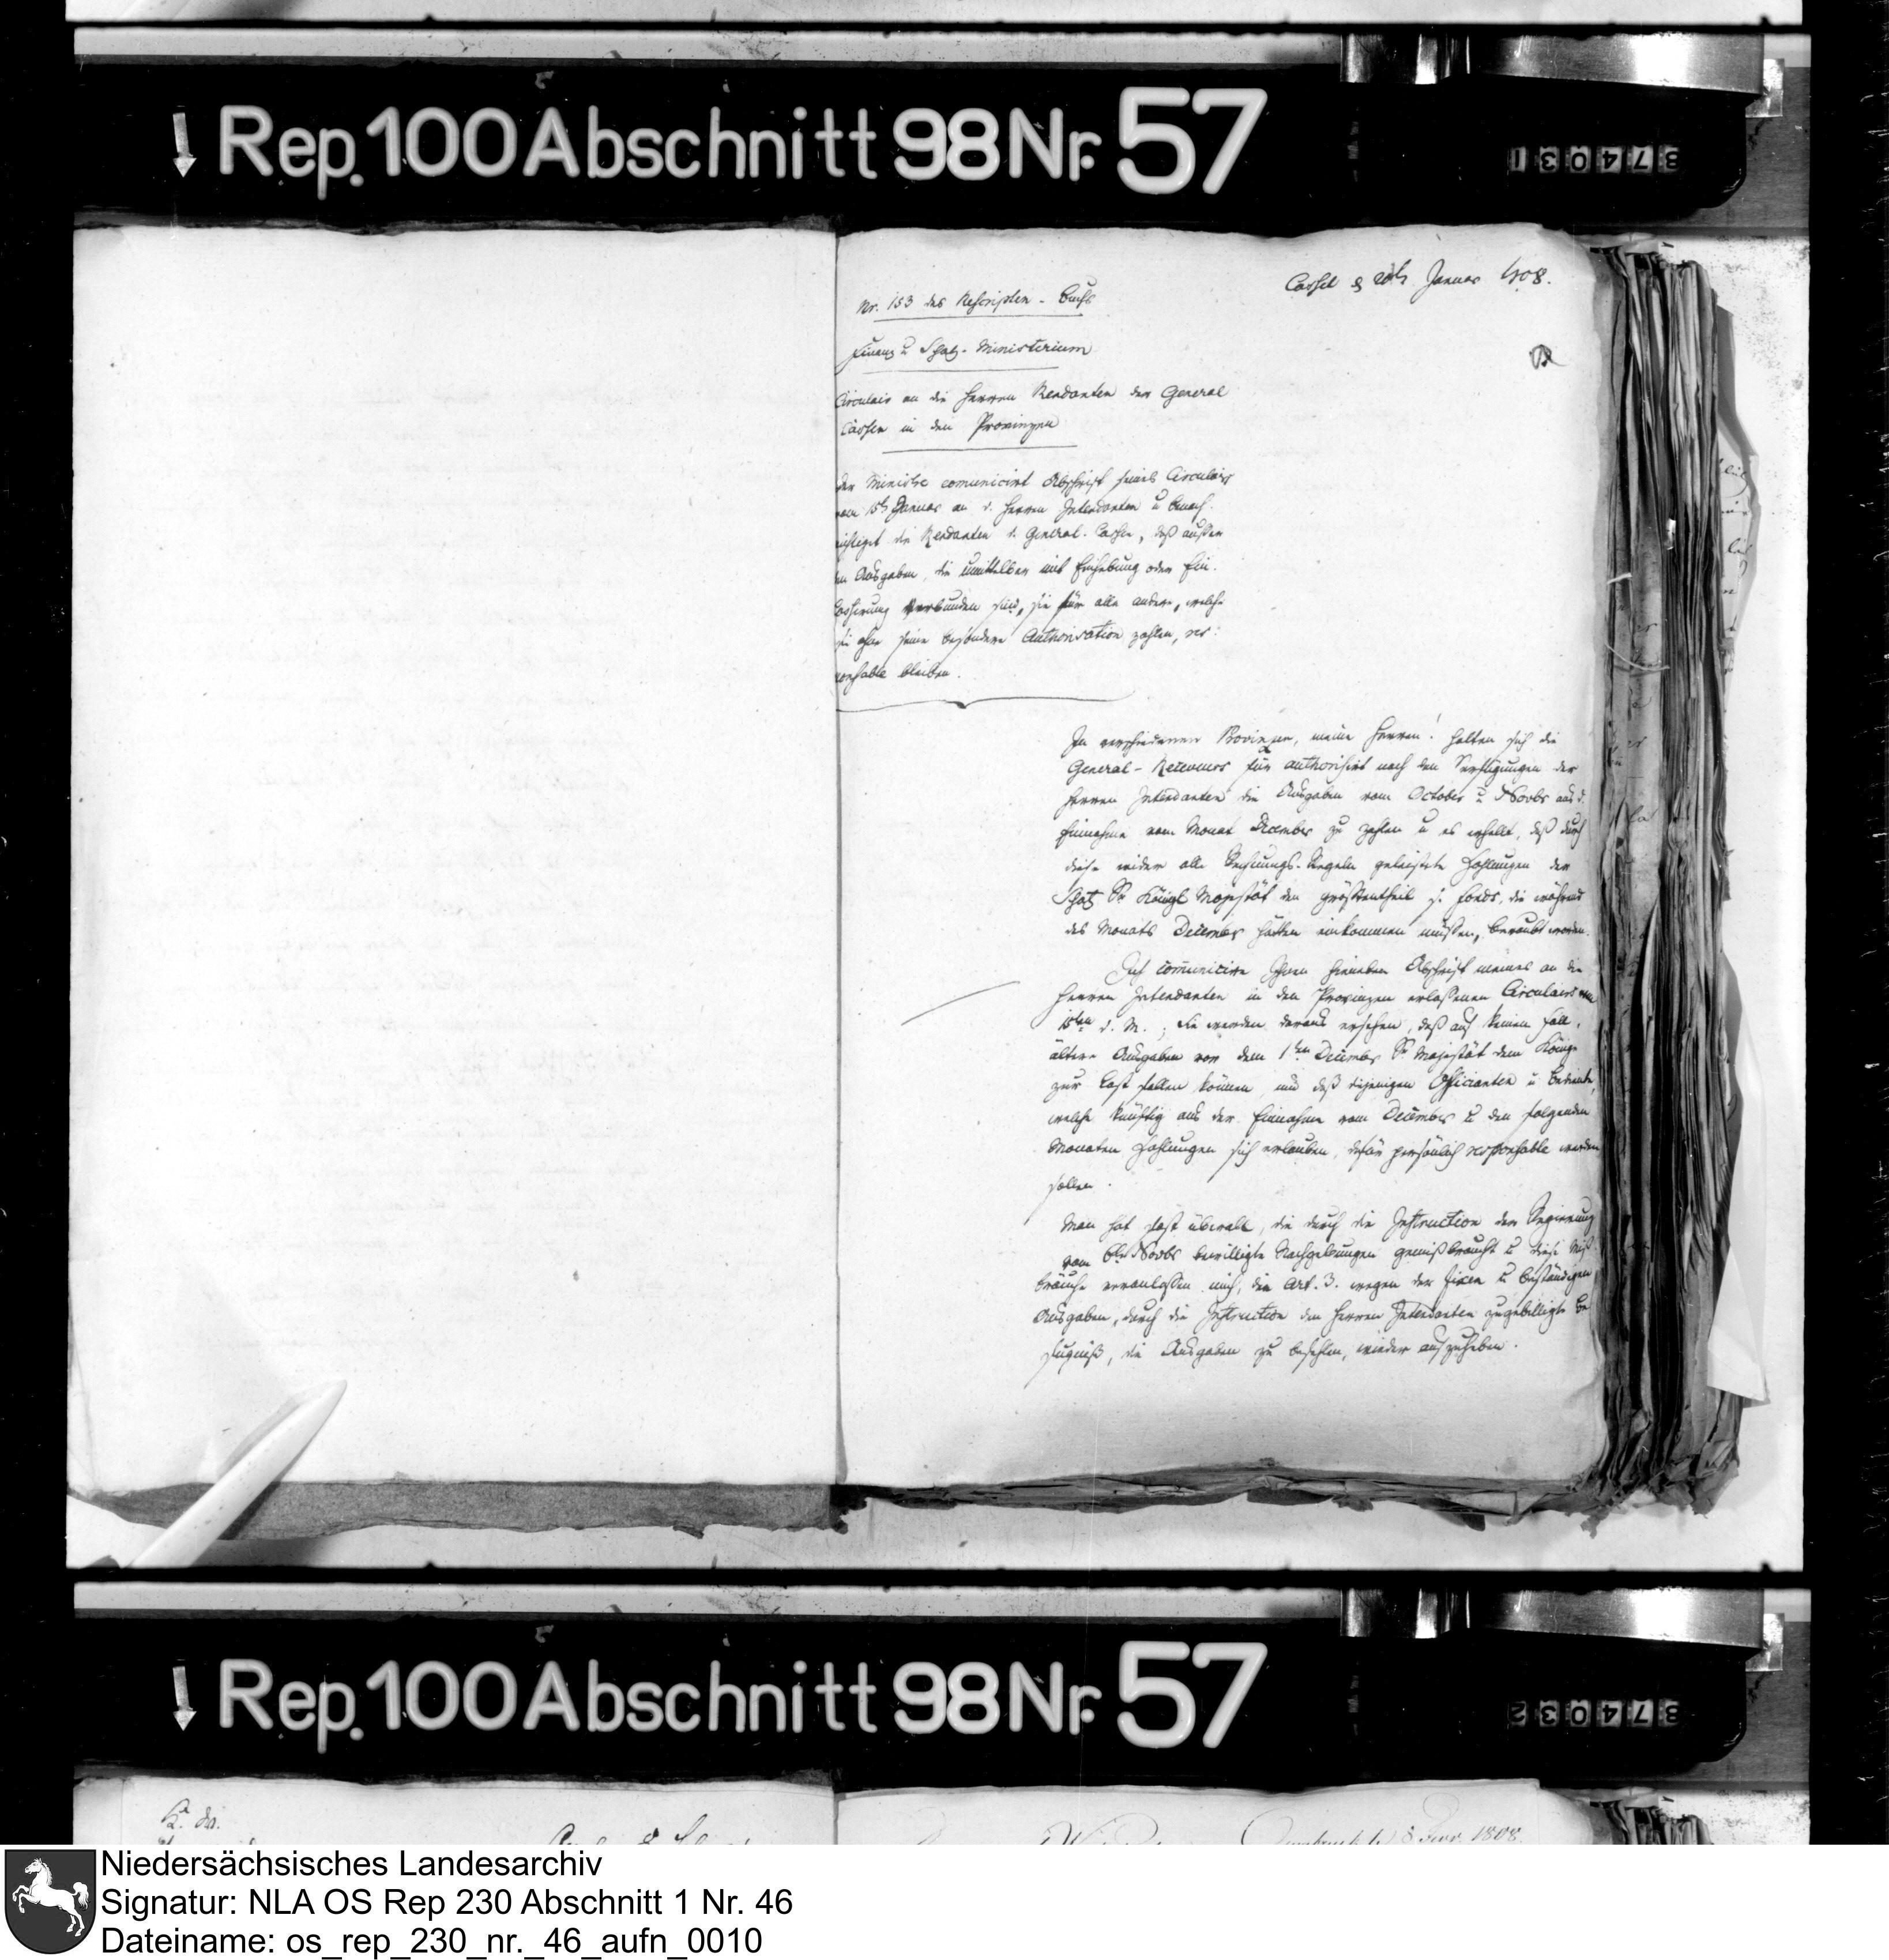 Rep. 100 Abschnitt 98 Nr. 57
374031
Cassel d 20ten Januar 1808.
Nr. 153 des Rescripten-Buchs
Finanz u Schatz-Ministerium
Circulair an die Herren Rendanten der General
Cassen in den Provinzen
der Ministre comunicirt Abschrift seines Circulairs
vom 15t Januar an d. Herren Intendanten u benach-
richtiget die Rendanten d. General-Cassen, daß außer
den Ausgaben, die unmittelbar mit Einhebung oder Ein-
cassirung verbunden sind, sie für alle andere, welche
sie ohne seine besondere Authorisation zahlen, res-
ponsable bleiben.
In verschiedenen Provinzen, meine Herren! halten sich die
General-Receveurs für authorisirt nach den Verfügungen der
Herren Intendanten die Ausgaben vom October u Novbr aus d.
Einnahme vom Monat December zu zahlen u es erhellt, daß durch
diese wider alle Rechnungs-Regeln geleistete Zahlungen der
Schatz Sr Königl Majestät den größtentheil s. fonds, die während
des Monats December hätten einkommen müssen, beraubt worden.
Ich comunicire Ihnen hieneben Abschrift meines an die
Herren Intendanten in den Provinzen erlassenen Circulairs vom
15ten d. M.; Sie werden daraus ersehen, daß auf keinen Fall,
ältere Ausgaben vor dem 1ten December Sr Majestät dem Könige
zur Last fallen können und daß diejenigen Officianten u Bediente,
welche künftig aus der Einnahme vom December u den folgenden
Monaten Zahlungen sich erlauben, dafür persönlich responsable werden
sollen.
Man hat fast überall, die durch die Instruction der Regierung
vom Novbr bewilligte Nachgebungen gemißbraucht u diese Miß-
bräuche veranlassen mich, die Art. 3. wegen der fixen u beständigen
Ausgaben, durch die Instruction den Herren Intendanten zugebilligte Be
fugniß, die Ausgaben zu befehlen, wieder aufzuheben.
Rep. 100 Abschnitt 98 Nr. 57
374032
1808.
Niedersächsisches Landesarchiv
Signatur: NLA OS Rep 230 Abschnitt 1 Nr. 46
Dateiname: os_rep_230_nr._46_aufn_0010